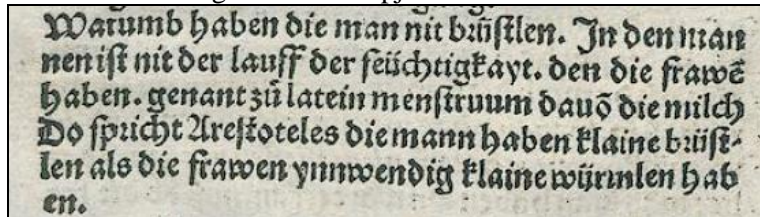 Warumb haben die man nit brüstlen. In den man
nen ist nit der lauff der feüchtigkayt. den die frawē
haben. genant zů latein menstruum dauō die milch
Do spricht Arestoteles die mann haben klaine brüst⸗
len als die frawen ynnwendig klaine würmlen hab
en.